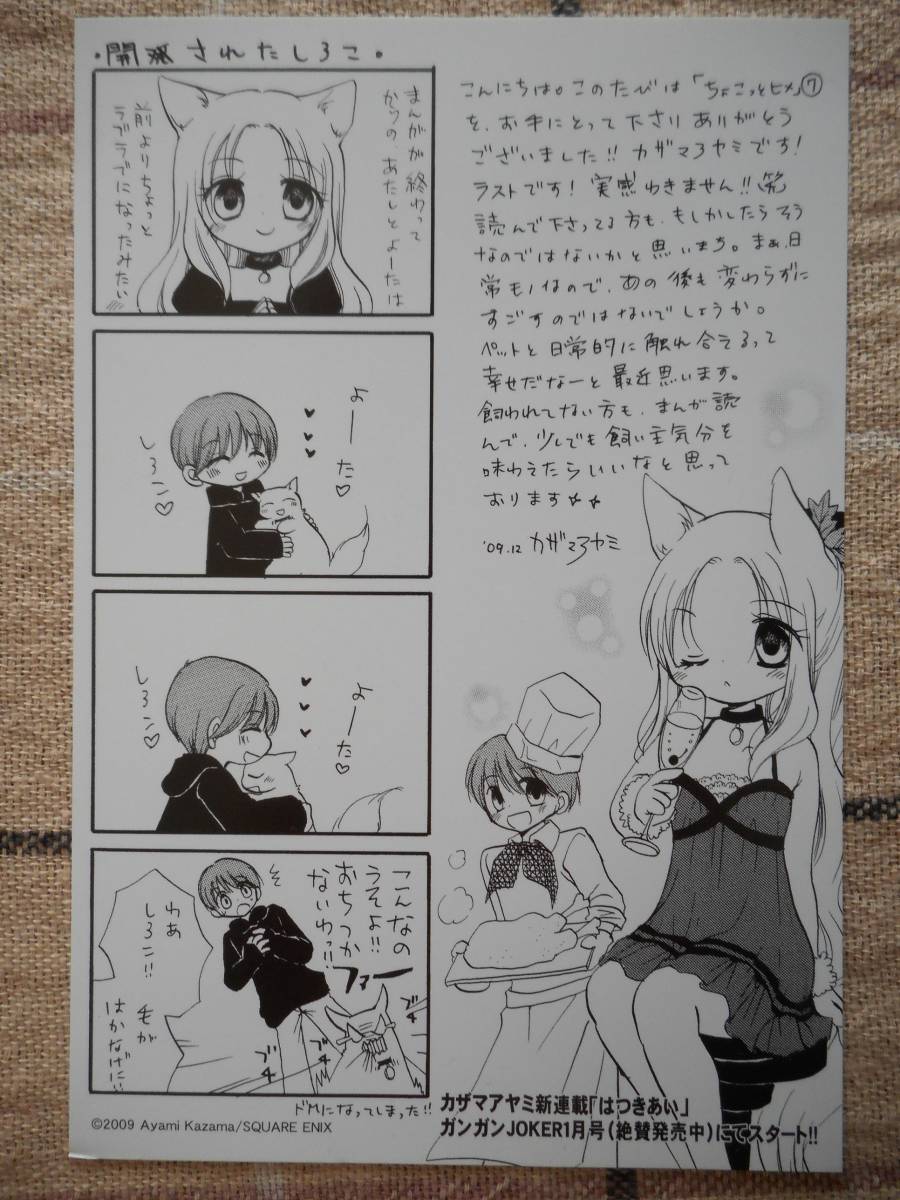 ・開発されたしろこ・
まんがが終わって
からの、あたしとよーたは
前よりちょっと
ラブラブになったみたい
よーた♡
しろこ♡
よーた♡
しろこ♡
こんなの
うそよ!!
おちつか
ないわっ!!
フアー
そ
わあ
しろこ!!
毛が
はかなげに!!
ブチ
ブチ
ブチ
ドMになってしまった!!
こんにちは。このたびは「ちょこっとヒメ」⑦
を、お手にとって下さり ありがとう
ございました!! カザマアヤミです!
ラストです! 実感わきません!!笑
読んで下さってる方も、もしかしたらそう
なのではないかと思います。まぁ、日
常モノなので、あの後も変わらずに
すごすのではないでしょうか。
ペットと日常的に触れ合えるって
幸せだなーと最近思います。
飼われてない方も、まんが読
んで、少しでも飼い主気分を
味わえたらいいなと思って
おります☆☆
'09.12 カザマアヤミ
カザマアヤミ新連載「はつきあい」
ガンガンJOKER1月号(絶賛発売中)にてスタート!!
©2009 Ayami Kazama/SQUARE ENIX